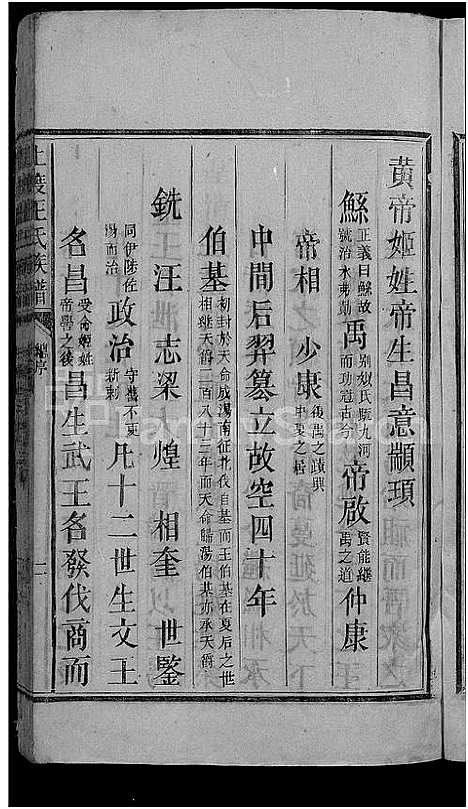 黃帝姬姓帝生昌意顓頊
鯀 正義曰鯀故號治水弗勋 禹 別姒氏甄九河而功遠古今 帝啟 賢能繼禹之道 仲康
帝相 少康 後禹之蹟興中夏之居
中間后羿篡立故空四十年
伯基 初封於天命成湯南征北伐自基而王伯基在夏后之世相繼天爵二百八十三年而天命歸湯伯基亦承天爵
銑 汪 泄 志 梁 大 煌 相奎 世鑒
同伊陟佐湯而治 政治 守舊不更新剌 凡十二世生文王
名昌 受命姬姓帝嚳之後 昌生武王名發伐商而
上渡汪氏族譜 總序 二